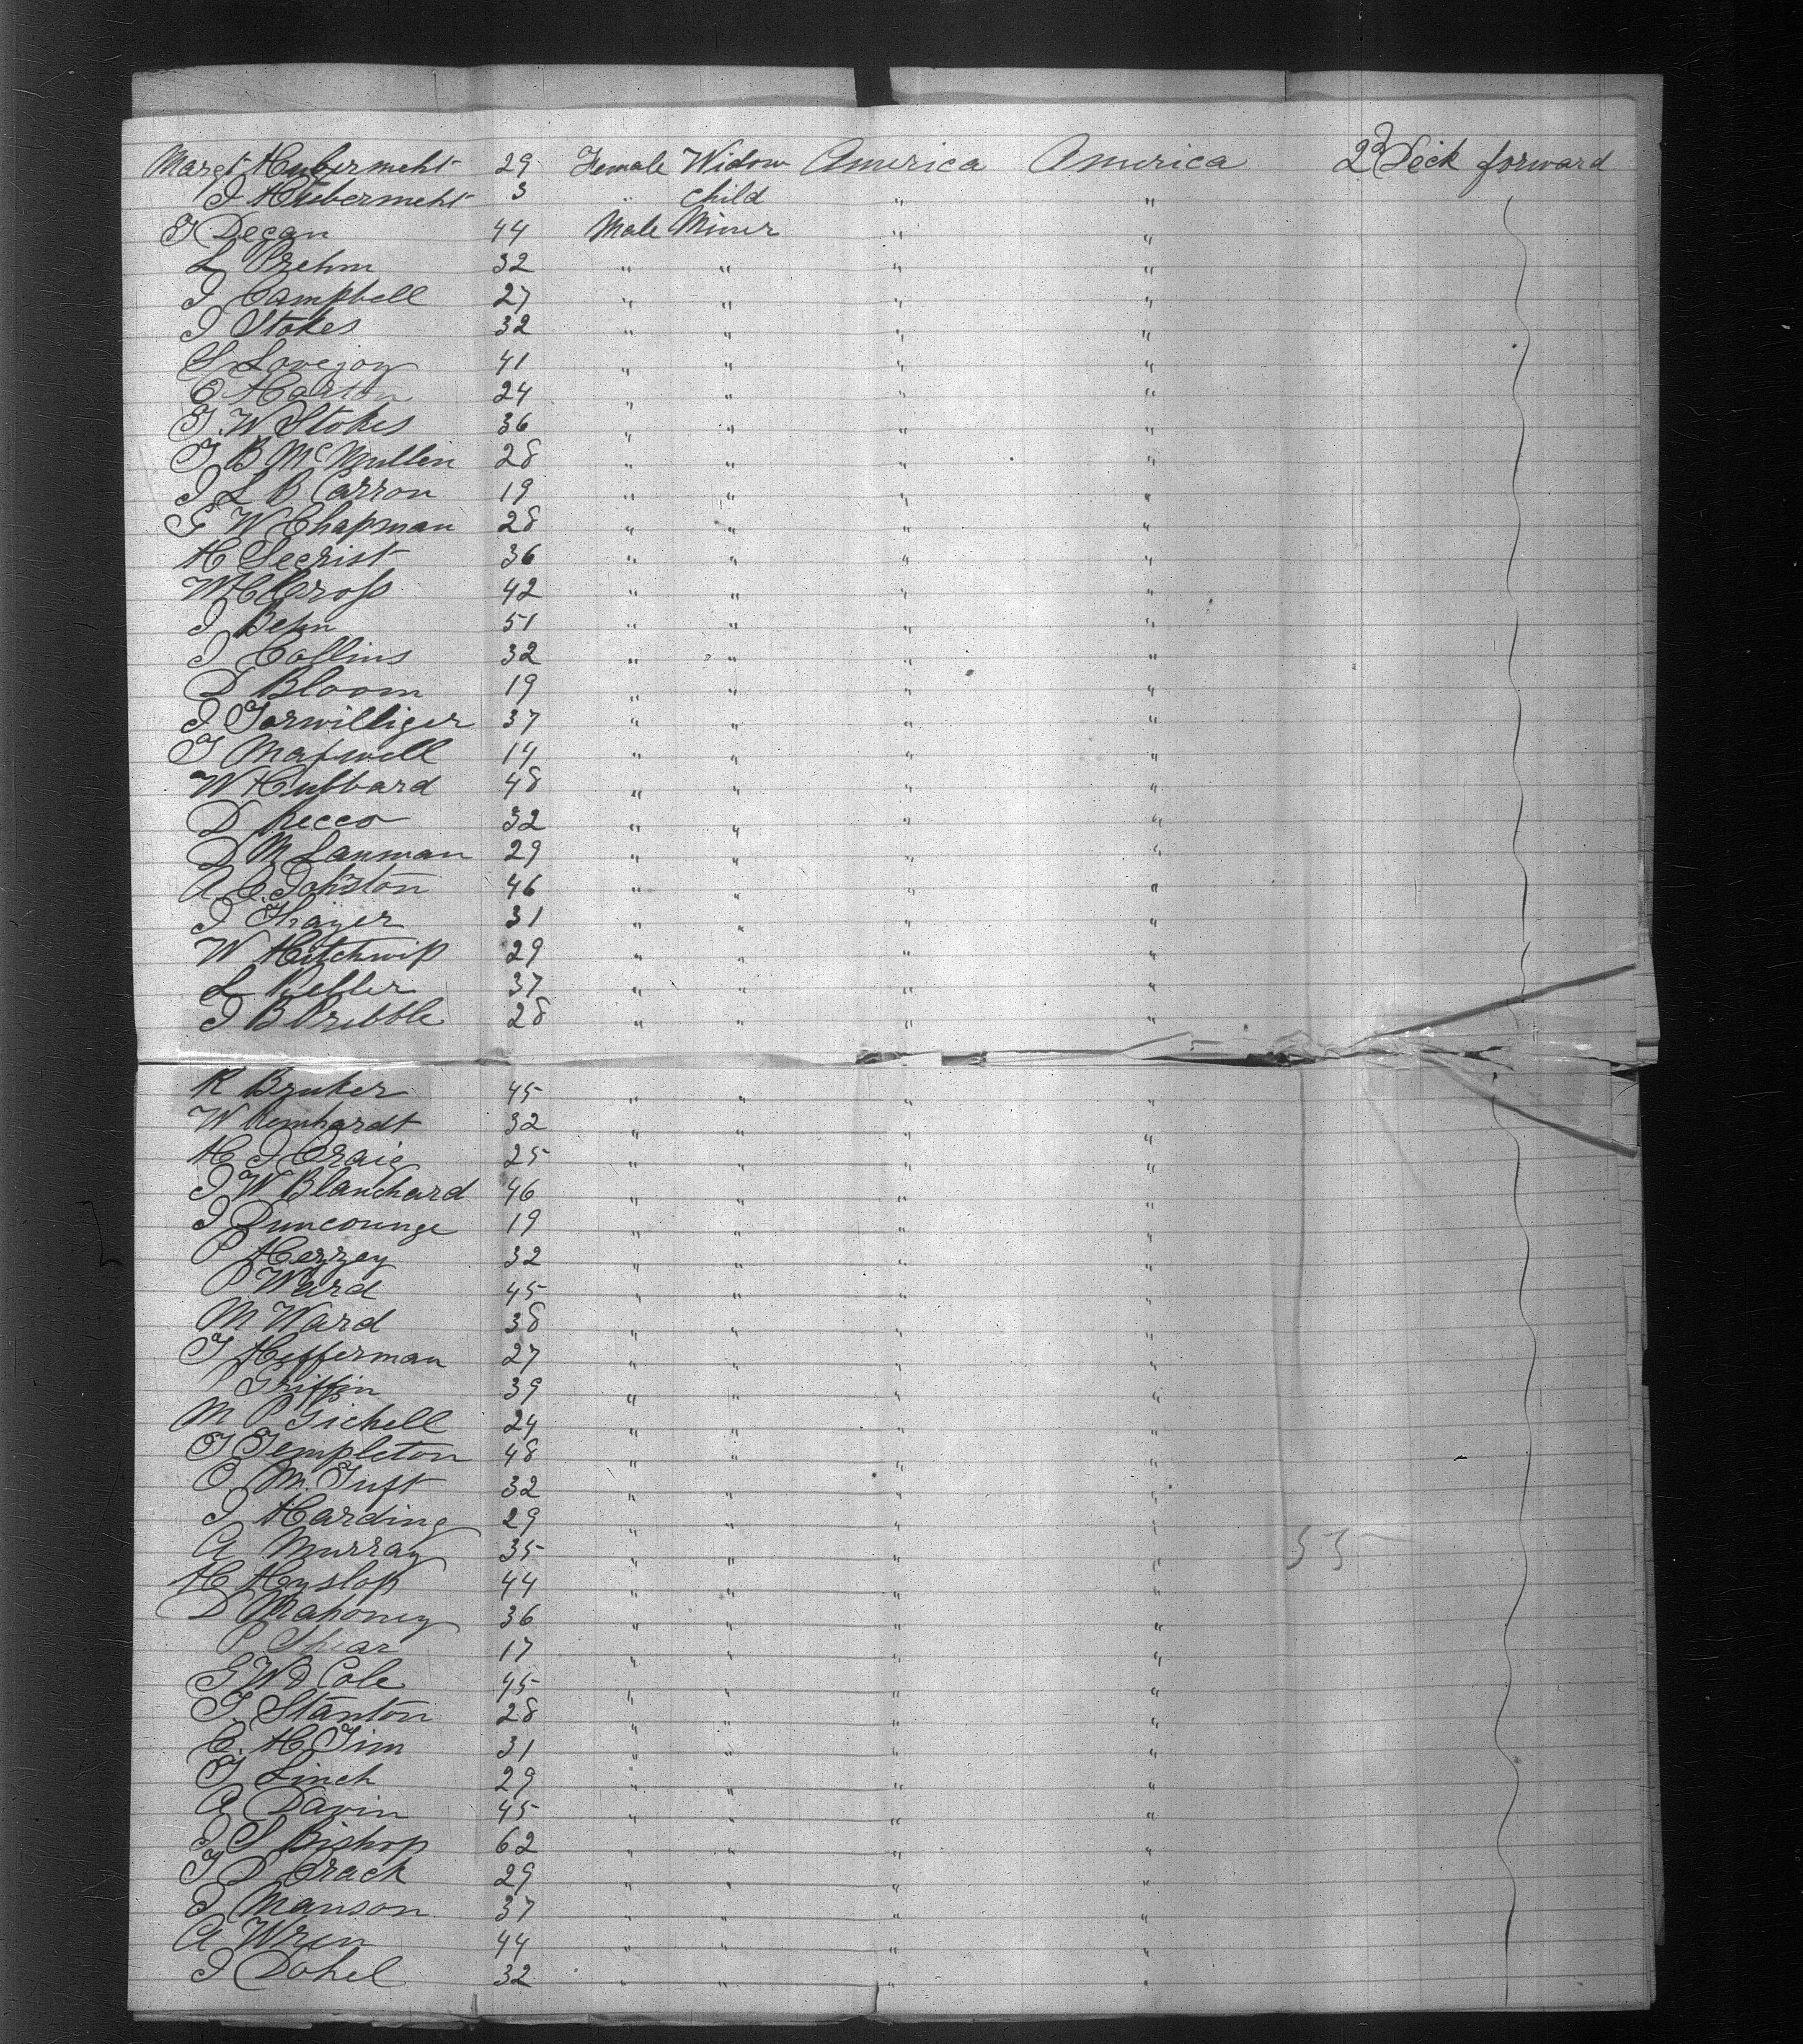 Margt Hubermeht 29 Female Widow America America 2d Deck forward
J Hubermeht 3 " Child " "
T Degan 44 Male Miner " "
L Prehm 32 " " " "
J Campbell 27 " " " "
J Stokes 32 " " " "
S Lovejoy 41 " " " "
C Horton 24 " " " "
T. W Stokes 36 " " " "
T B McMullen 28 " " " "
J L B Carron 19 " " " "
G W Chapman 28 " " " "
H Secrist 36 " " " "
W H Cross 42 " " " "
J Behn 51 " " " "
J Collins 32 " " " "
D Bloom 19 " " " "
J Tarwilliger 37 " " " "
T Maxwell 14 " " " "
W Hubbard 48 " " " "
D Recco 32 " " " "
D M Lanman 29 " " " "
A. C. Johston 46 " " " "
J Thayer 31 " " " "
W Hitchwiss 29 " " " "
L Kebler 37 " " " "
J B Pribble 28 " " " "
R Bruker 45 " " " "
W Renhardt 32 " " " "
H J Craig 25 " " " "
J W Blanchard 46 " " " "
J Duncounge 19 " " " "
P Herzey 32 " " " "
P Ward 45 " " " "
M Ward 38 " " " "
T Hefferman 27 " " " "
P Griffin 39 " " " "
M P Gichell 24 " " " "
T Templeton 48 " " " "
O M. Tuft 32 " " " "
J Harding 29 " " " "
A Murray 35 " " " "
H Hyslop 44 " " " "
D Mahoney 36 " " " "
P Shear 17 " " " "
G W D Cole 45 " " " "
T. Stanton 28 " " " "
C. H Tim 31 " " " "
T Linch 29 " " " "
A Davin 45 " " " "
J S Bishop 62 " " " "
T D Crack 29 " " " "
P Manson 37 " " " "
A Wren 44 " " " "
J Dohel 32 " " " "
55